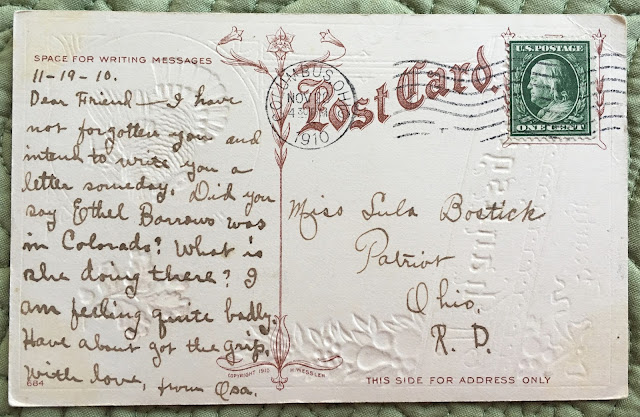 SPACE FOR WRITING MESSAGES
11-19-10.
Dear Friend— I have
not forgotten you and
intend to write you a
letter someday. Did you
say Ethel Barrows was
in Colorado? What is
she doing there? I
am feeling quite badly.
Have about got the grip.
With love, from Osa.
684
Post Card.
COLUMBUS, O.
NOV
1910
U.S. POSTAGE
ONE CENT
Miss Lula Bostick
Patriot
Ohio.
R. D.
COPYRIGHT 1910 H. WESSLER
THIS SIDE FOR ADDRESS ONLY